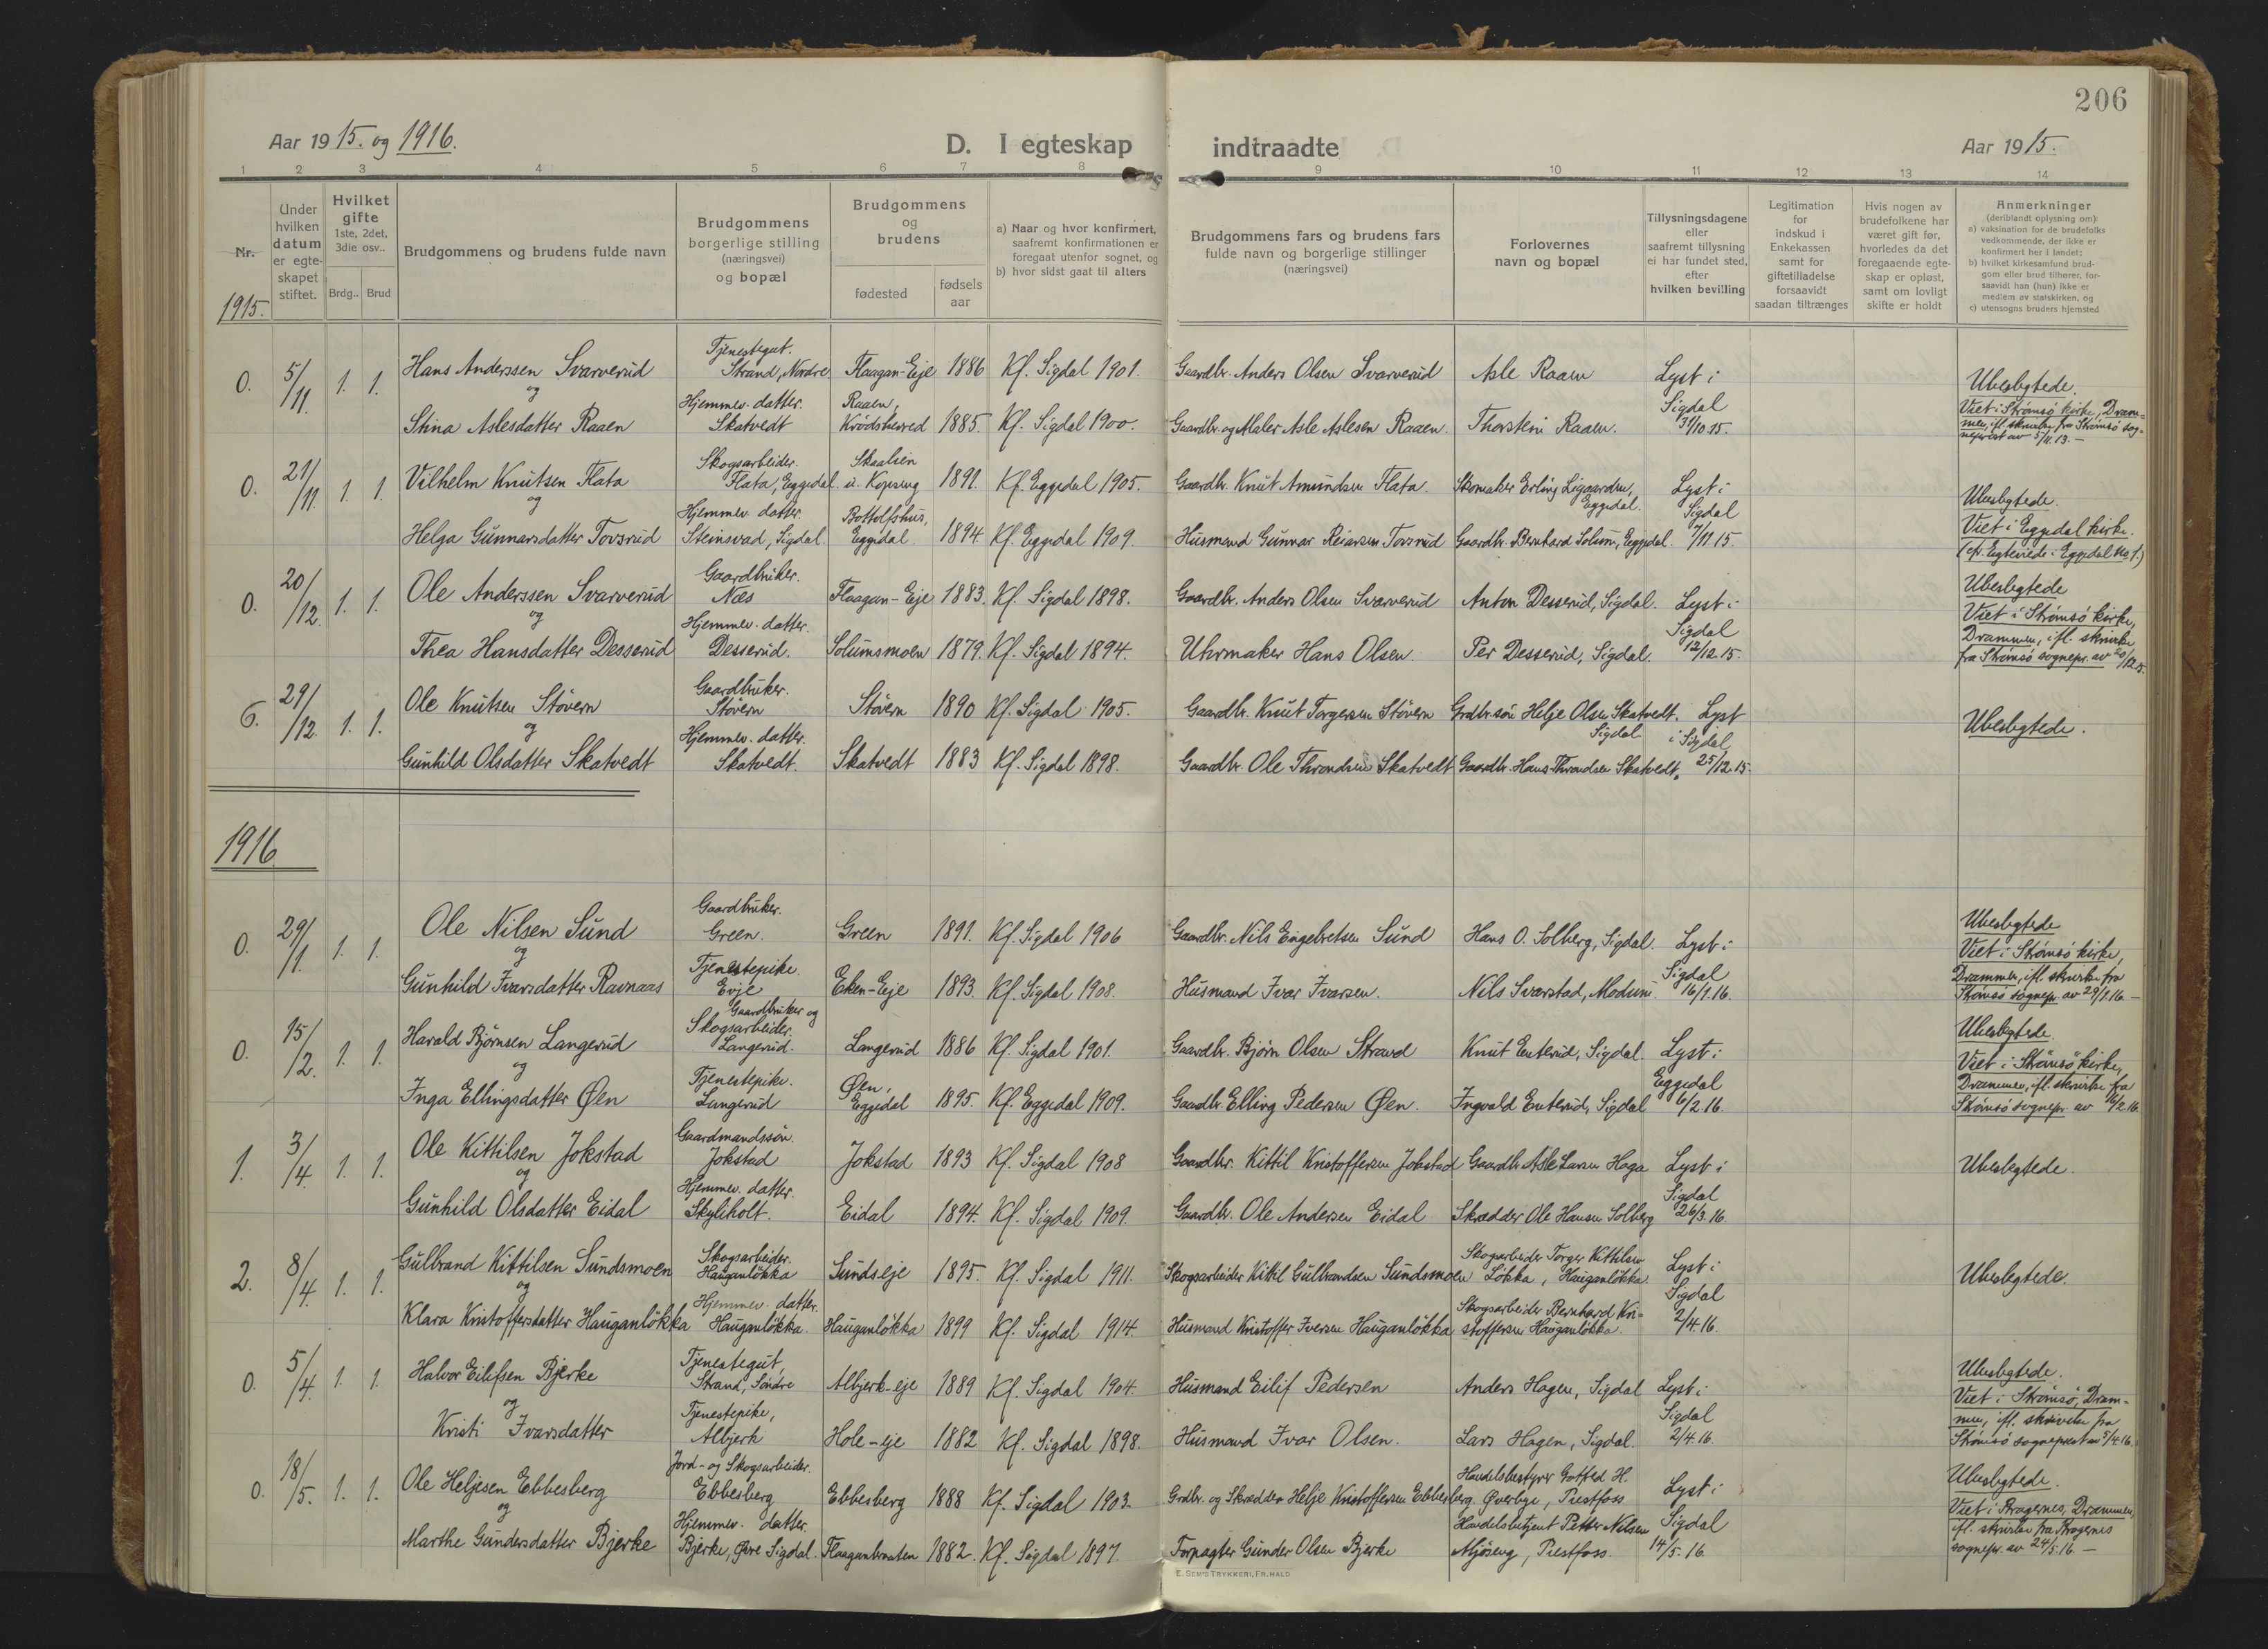 206
Aar 1915. og 1916.
D. I egteskap indtraadte
Aar 1915.
1 2 3 4 5 6 7 8 9 10 11 12 13 14
Nr.
Under hvilken datum er egte-skapet stiftet.
Hvilket gifte 1ste, 2det, 3die osv..
Brdg.. Brud
Brudgommens og brudens fulde navn
Brudgommens borgerlige stilling (næringsvei) og bopæl
Brudgommens og brudens
fødested
fødsels aar
a) Naar og hvor konfirmert, saafremt konfirmationen er foregaat utenfor sognet, og
b) hvor sidst gaat til alters
Brudgommens fars og brudens fars fulde navn og borgerlige stillinger (næringsvei)
Forlovernes navn og bopæl
Tillysningsdagene eller saafremt tillysning ei har fundet sted, efter hvilken bevilling
Legitimation for indskud i Enkekassen samt for giftetilladelse forsaavidt saadan tiltrænges
Hvis nogen av brudefolkene har været gift før, hvorledes da det foregaaende egte-skap er opløst, samt om lovligt skifte er holdt
Anmerkninger (deriblandt oplysning om):
a) vaksination for de brudefolks vedkommende, der ikke er konfirmert her i landet;
b) hvilket kirkesamfund brud-gom eller brud tilhører, for-saavidt han (hun) ikke er medlem av statskirken, og
c) utensogns bruders hjemsted
1915.
0. 5/11. 1. 1. Hans Anderssen Svarverud Tjenestegut. Strand, Nordre Flaagan-Eje 1886 Kf. Sigdal 1901. Gaardbr. Anders Olsen Svarverud Asle Raaen Lyst i Sigdal 31/10.15. Ubeslegtede.
og
Stina Aslesdatter Raaen Hjemmev. datter. Skatvedt Raaen, Krødsherred 1885. Kf. Sigdal 1900. Gaardbr. og Maler Asle Aslesen Raaen. Thorstein Raaen. Viet i Strømsö kirke, Dram=men, ifl. skrivelse fra Strømsö sog=neprest av 5/11.13.—
0. 21/11. 1. 1. Vilhelm Knutsen Flata Skogsarbeider. Flata, Eggedal. Skaalien u. Kopseng 1891. Kf. Eggedal 1905. Gaardbr. Knut Amundsen Flata. Skomaker Erling Ligaarden, Eggedal. Lyst i Sigdal 7/11 15. Ubeslegtede.
og
Helga Gunnarsdatter Tovsrud Hjemmev. datter. Steinsvad, Sigdal. Bottolfshus, Eggedal. 1894 Kf. Eggedal 1909. Husmand Gunnar Reiarsen Tovsrud Gaardbr. Bernhard Solum, Eggedal. Viet i Eggedal kirke. (cfr. Egteviede i Eggedal No 1)
0. 20/12. 1. 1. Ole Anderssen Svarverud Gaardbruker. Næs Flaagan-Eje 1883. Kf. Sigdal 1898. Gaardbr. Anders Olsen Svarverud Anton Desserud, Sigdal. Lyst i Sigdal 12/12.15. Ubeslegtede
og
Thea Hansdatter Desserud Hjemmev. datter. Desserud. Solumsmoen 1879. Kf. Sigdal 1894. Uhrmaker Hans Olsen. Per Desserud, Sigdal. Viet i Strømsö kirke, Drammen, ifl. skrivelse fra Strømsö sognepr. av 20/12.15.
6. 29/12. 1. 1. Ole Knutsen Stövern Gaardbruker. Stövern Stövern 1890 Kf. Sigdal 1905. Gaardbr. Knut Torgersen Stövern Grdbr.sön Helje Olsen Skatvedt, Sigdal Lyst i Sigdal 25/12.15. Ubeslegtede.
og
Gunhild Olsdatter Skatvedt Hjemmev. datter. Skatvedt. Skatvedt 1883 Kf. Sigdal 1898. Gaardbr. Ole Throndsen Skatvedt Gaardbr. Hans Throndsen Skatvedt.
1916
0. 29/1. 1. 1. Ole Nilsen Sund Gaardbruker. Green. Green 1891. Kf. Sigdal 1906 Gaardbr. Nils Engebretsen Sund Hans O. Solberg, Sigdal. Lyst i Sigdal 16/1.16. Ubeslegtede
og
Gunhild Ivarsdatter Ravnaas Tjenestepike. Evje Eken-Eje 1893. Kf. Sigdal 1908. Husmand Ivar Ivarsen. Nils Svarstad, Modum. Viet i Strømsö kirke, Drammen, ifl. skrivelse fra Strømsö sognepr. av 29/1.16.—
0. 15/2. 1. 1. Harald Bjørnsen Langerud Gaardbruker og Skogsarbeider. Langerud. Langerud 1886 Kf. Sigdal 1901. Gaardbr. Bjørn Olsen Strand Knut Enterud, Sigdal. Lyst i Eggedal 6/2.16. Ubeslegtede.
og
Inga Ellingsdatter Øen Tjenestepike. Langerud Øen, Eggedal 1895. Kf. Eggedal 1909. Gaardbr. Elling Pedersen Øen. Ingvald Enterud, Sigdal Viet i Strømsö kirke, Drammen, ifl. skrivelse fra Strømsö sognepr. av 16/2.16.
1. 3/4. 1. 1. Ole Kittilsen Jokstad Gaardmandssön. Jokstad Jokstad 1893 Kf. Sigdal 1908 Gaardbr. Kittil Kristoffersen Jokstad Gaardbr. Asle Larsen Haga Lyst i Sigdal 26/3.16. Ubeslegtede.
og
Gunhild Olsdatter Eidal Hjemmev. datter. Skyliholt. Eidal 1894. Kf. Sigdal 1909. Gaardbr. Ole Andersen Eidal Skrædder Ole Hansen Solberg
2. 8/4. 1. 1. Gulbrand Kittilsen Sundsmoen Skogsarbeider. Hauganløkka Sundseje 1895. Kf. Sigdal 1911. Skogsarbeider Kittil Gulbrandsen Sundsmoen Skogsarbeider Torger Kittilsen Løkka, Hauganløkka. Lyst i Sigdal 2/4.16. Ubeslegtede.
og
Klara Kristoffersdatter Hauganløkka Hjemmev. datter. Hauganløkka. Hauganløkka 1899 Kf. Sigdal 1914. Husmand Kristoffer Iversen Hauganløkka Skogsarbeider Bernhard Kri=stoffersen Hauganløkka.
0. 5/4. 1. 1. Halvor Eilifsen Bjerke Tjenestegut, Strand, Söndre Albjerk-eje 1889 Kf. Sigdal 1904. Husmand Eilif Pedersen Anders Hagen, Sigdal Lyst i Sigdal 2/4.16. Ubeslegtede.
og
Kristi Ivarsdatter Tjenestepike, Albjerk Hole-eje 1882 Kf. Sigdal 1898. Husmand Ivar Olsen. Lars Hagen, Sigdal. Viet i Strømsö, Dram=men, ifl. skrivelse fra Strømsö sogneprest av 5/4.16.
0. 18/5. 1. 1. Ole Heljesen Ebbesberg Jord- og Skogsarbeider. Ebbesberg Ebbesberg 1888 Kf. Sigdal 1903. Grdbr. og Skrædder Helje Kristoffersen Ebbesberg. Handelsbestyrer Gotfred H. Øverbye, Prestfoss Lyst i Sigdal 14/5.16. Ubeslegtede.
og
Marthe Gundersdatter Bjerke Hjemmev. datter. Bjerke, Øvre Sigdal. Flaaganbraaten 1882. Kf. Sigdal 1897. Forpagter Gunder Olsen Bjerke Handelsbetjent Petter Nilsen Mjøseng, Prestfoss. Viet i Bragernes, Drammen, ifl. skrivelse fra Bragernes sognepr. av 24/5.16.—
E. SEM'S TRYKKERI, FR.HALD